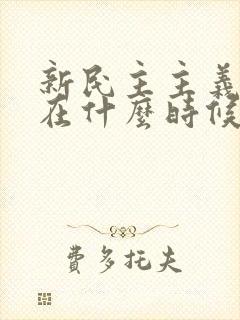 新民主主義
在什麼時候
費多托夫